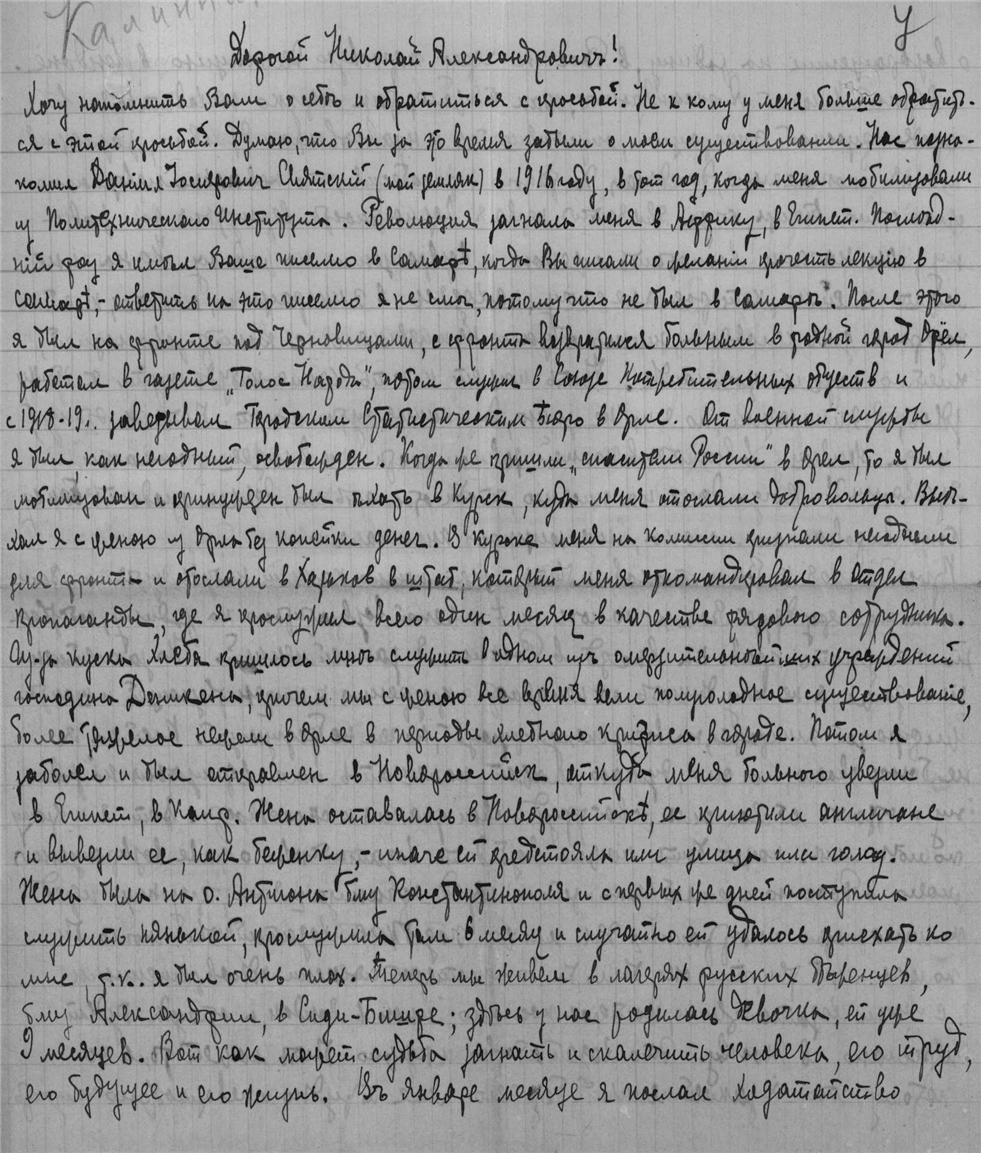 Калинин.
У
Дорогой Николай Александровичъ!
Хочу напомнить Вам о себѣ и обратиться с просьбой. Не к кому у меня больше обратить-
ся с этой просьбой. Думаю, что Вы за это время забыли о моем существовании. Нас позна-
комил Данiил Осипович Святскiй (мой земляк) в 1916 году, в тот год, когда меня мобилизовали
из Политехническаго Института. Революция загнала меня в Африку, в Египет. Послѣд-
нiй раз я имѣл Ваше письмо в Самарѣ, когда Вы писали о желанiи прочесть лекцiю в
Самарѣ, - ответить на это письмо я не смог, потому что не был в Самарѣ. После этого
я был на фронте под Черновицами, с фронта возвратился больным в родной город Орёл,
работал в газете „Голос Народа", потом служил в Союзе Потребительных обществ и
с 1918-19г. заведывал Городским Статистическим Бюро в Орле. От военной службы
я был, как негодный, освобожден. Когда же пришли „спасители России" в Орел, то я был
мобилизован и принужден был ѣхать в Курск, куда меня отослали добровольцы. Выѣ-
хал я с женою из Орла без копейки денег. В Курске меня на комиссии признали негодным
для фронта и отослали в Харьков в штаб, который меня откомандировал в отдел
пропаганды, где я прослужил всего один месяц в качестве рядового сотрудника.
Из-за куска хлеба пришлось мнѣ служить в одном изъ омерзительнѣйших учреждений
господина Деникина, причем мы с женою все время вели полуголодное существование,
более тяжелое нежели в Орле в периоды хлебного кризиса в городе. Потом я
заболел и был отправлен в Новороссийск, откуда меня больного увезли
в Египет, в Каир. Жена оставалась в Новороссийскѣ, ее приютили англичане
и вывезли ее, как беженку, - иначе ей предстояла или улица или голод.
Жена была на о. Антигона близ Константинополя и с первых же дней поступила
служить нянькой, прослужила там 6 месяц и случайно ей удалось приехать ко
мне, т.к. я был очень плох. Теперь мы живем в лагерях русских бѣженцев,
близ Александрии, в Сиди-Бишре; здѣсь у нас родилась дѣвочка, ей уже
9 месяцев. Вот как может судьба загнать и искалечить человека, его труд,
его будущее и его жизнь. Въ январе месяце я послал ходатайство